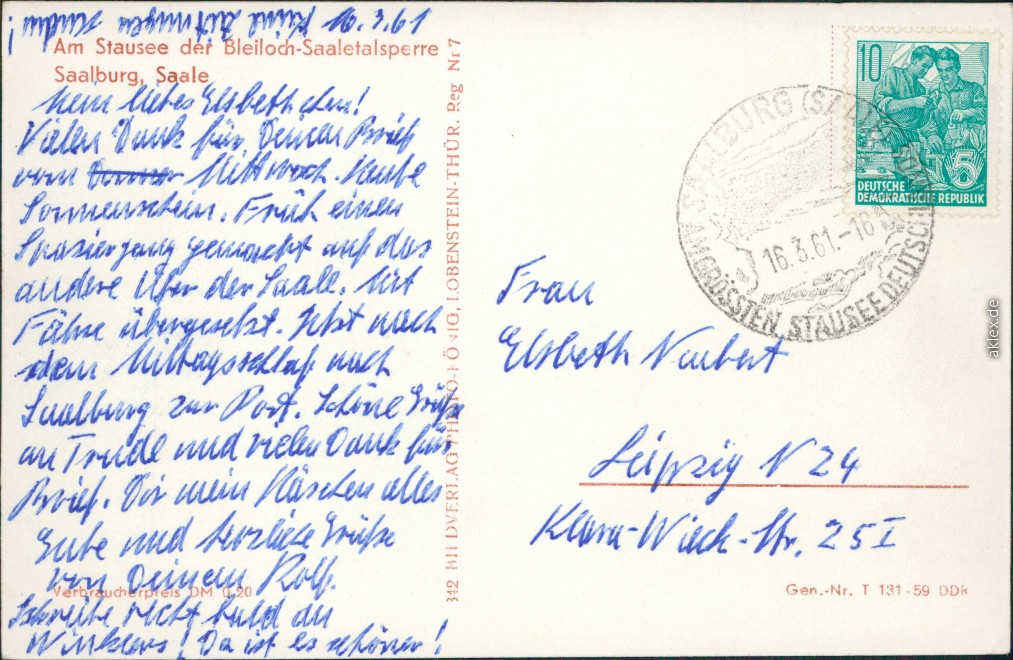 16.3.61
Am Stausee der Bleiloch-Saaletalsperre
Saalburg, Saale
Mein liebes Elsbethchen!
Vielen Dank für Deinen Brief
vom Mittwoch. Heute
Sonnenschein. Früh einen
Spaziergang gemacht auf das
andere Ufer der Saale. Mit
Fähre übergesetzt. Jetzt nach
dem Mittagsschlaf nach
Saalburg zur Post. Schöne Grüße
an Trude und vielen Dank für
Brief. Dir mein Häschen alles
Gute und herzliche Grüße
von Deinem Rolf.
Verbraucherpreis DM 0,20
Schreibe recht bald an
Winklers! Da ist es schöner!
342 BILDVERLAG PHOTO-KÖNIG, LOBENSTEIN-THÜR. Reg Nr 7
10
5
DEUTSCHE
DEMOKRATISCHE REPUBLIK
SAALBURG (SAALE)
16.3.61.-16
AM GRÖSSTEN STAUSEE DEUTSCHL
Frau
Elsbeth Neubert
Leipzig N 24
Klara-Wieck-Str. 25 I
Gen.-Nr. T 131-59 DDR
aklex.de